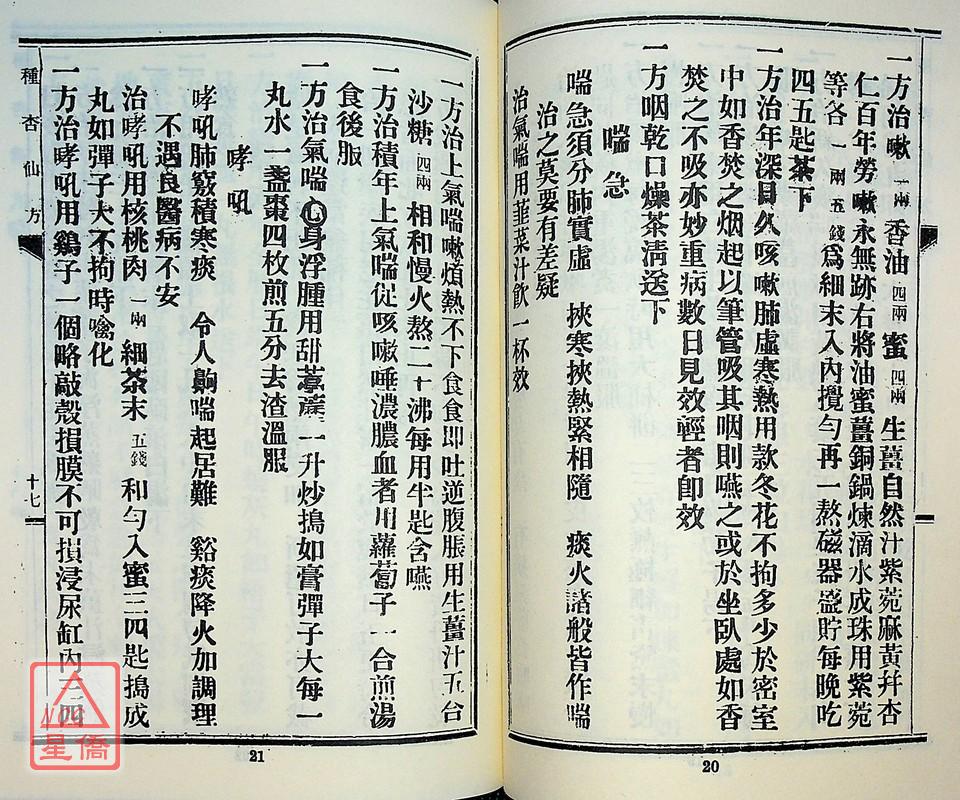 一方治嗽一兩香油四兩蜜四兩生薑自然汁紫菀麻黃幷杏
仁百年勞嗽永無跡右將油蜜薑銅鍋煉滴水成珠用紫菀
等各一兩五錢爲細末入內攪勻再一熬磁器盛貯每晚吃
四五匙茶下
一方治年深日久咳嗽肺虛寒熱用款冬花不拘多少於密室
中如香焚之烟起以筆管吸其咽則嚥之或於坐臥處如香
焚之不吸亦妙重病數日見效輕者卽效
一方咽乾口燥茶淸送下
喘急
喘急須分肺實虛 挾寒挾熱緊相隨 痰火諸般皆作喘
治之莫要有差疑
治氣喘用韮菜汁飮一杯效
20
一方治上氣喘嗽煩熱不下食食即吐逆腹脹用生薑汁五合
沙糖四兩相和慢火熬二十沸每用半匙含嚥
一方治積年上氣喘促咳嗽唾濃膿血者用蘿蔔子一合煎湯
食後服
一方治氣喘心身浮腫用甜葶藶一升炒搗如膏彈子大每一
丸水一盞棗四枚煎五分去渣溫服
哮吼
哮吼肺竅積寒痰 令人齁喘起居難 豁痰降火加調理
不遇良醫病不安
治哮吼用核桃肉一兩細茶末五錢和勻入蜜三四匙搗成
丸如彈子大不拘時噙化
一方治哮吼用鷄子一個略敲殼損膜不可損浸尿缸內三四
種杏仙方
十七
21
NCC
星僑